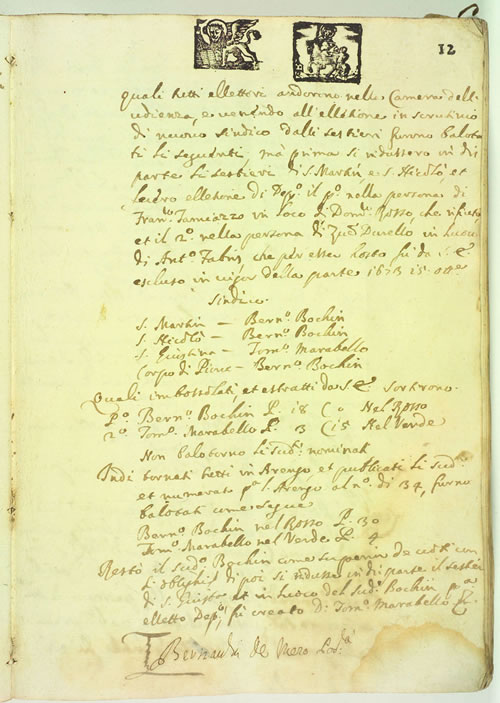 12
quali tutti ellettori andorino nella Camera dell'
udienza, e venendo all'ellettione in scrutinio
di nuovo sindico dalli sestieri furono balota
ti li seguenti, mà prima si ridussero in di
parte li sestieri di S. Martin e S. Nicolò, et
ellettione di Depo. il po. nella persona di
Frano. Tamiozzo in loco di Rosso, che
et il 2o. nella persona di Durello in luoco
di Anto. Fabris che per esser hosto fu da S. E.
escluso in vigor della parte 1673 15
Sindico.
S. Martin – Berno. Bochin
S. Nicolò – Berno. Bochin
S. Giustina – Tomo. Marabello
Corpo di Pieve – Berno. Bochin
Quali imbossolati et estratti da S. E. sortirono.
Po. Berno. Bochin P. 18 ( 0 Nel Rosso
2o. Tomo. Marabello P. 3 ( 15 Nel Verde
Non balotorno li sudi. nominati
Indi tornati tutti in Arengo et publicati li sudi.
et numerato l'Arengo al no. di 34, furno
balotati come segue
Berno. Bochin nel Rosso P. 30
Tomo. Marabello nel Verde P. 4
Restò il sudo. Bochin come superior de voti con
li di poi si ridusse in di parte il sestier
di S. et in luoco del sudo. Bochin
elletto Depo. fù creato di Tomo. Marabello
de